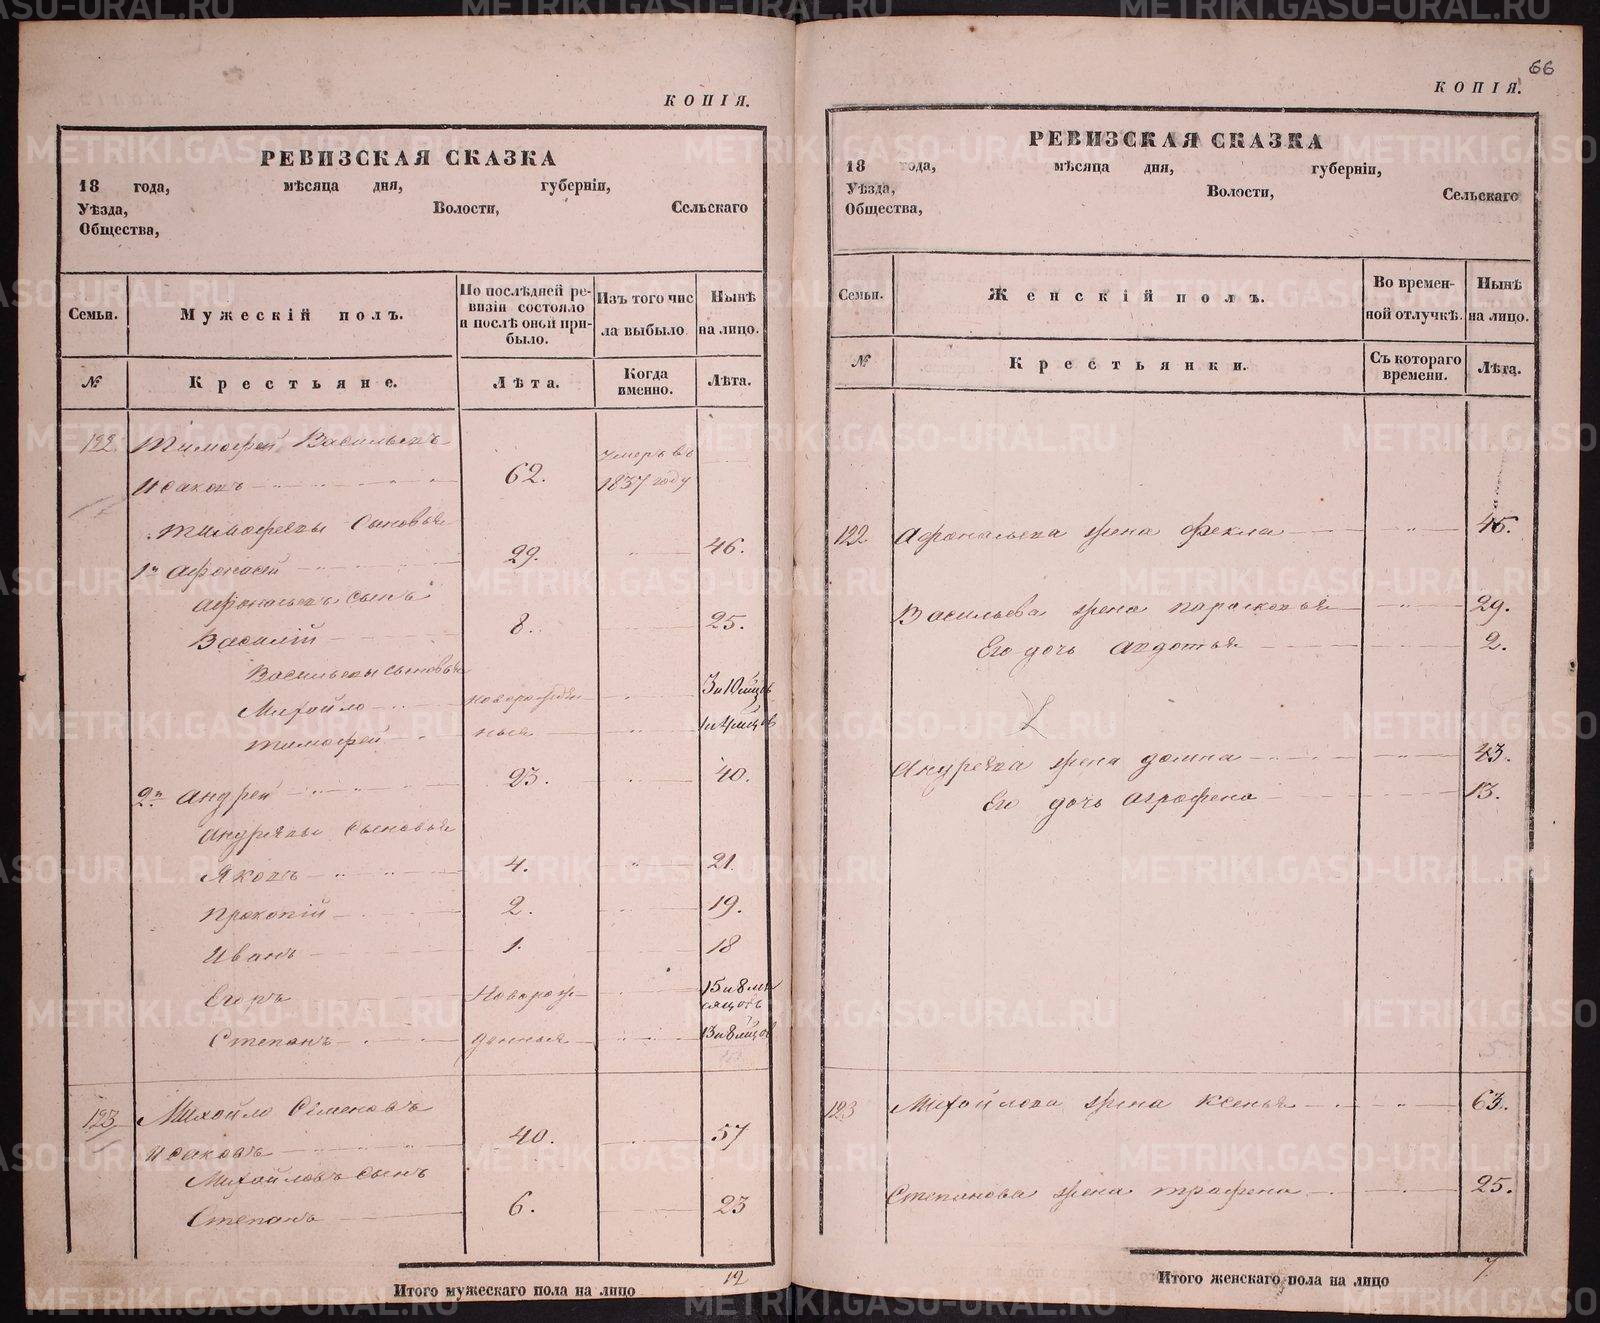 КОПІЯ.
РЕВИЗСКАЯ СКАЗКА
18 года, мѣсяца дня, губерніи,
Уѣзда, Волости, Сельскаго
Общества,
Семьи. Мужескій полъ. По послѣдней ре-визіи состояло и послѣ оной при-было. Изъ того чис ла выбыло Нынѣ на лицо.
№ Крестьяне. Лѣта. Когда именно. Лѣта.
122. Тимофей Васильевъ умеръ въ
Исаковъ 62. 1837 году
Тимофеевы Сыновья
1й Афонасей 29. 46.
Афонасьевъ сынъ
Василій 8. 25.
Васильевы сыновья
Михойло новорожден 3 и 10 мцовъ
Тимофей ныя 1 и 4 мцовъ
2й Андрей 23. 40.
Андреевы Сыновья
Яковъ 4. 21.
Прокопій 2. 19.
Иванъ 1. 18
Егоръ Новорож 15 и 8 мѣ
сяцовъ
Степанъ денныя 13 и 8 мцов
123 Михойло Семеновъ
Исаковъ 40. 57
Михойловъ сынъ
Степанъ 6. 23
Итого мужескаго пола на лицо 12
66
КОПІЯ.
РЕВИЗСКАЯ СКАЗКА
18 года, мѣсяца дня, губерніи,
Уѣзда, Волости, Сельскаго
Общества,
Семьи. Женскій полъ. Во времен-ной отлучкѣ. Нынѣ на лицо.
№ Крестьянки. Съ котораго времени. Лѣта.
122. Афонасьева жена Фекла 45.
Васильева жена Парасковья 29.
Его дочь Авдотья 2.
Андреева жена Домна 43.
Его дочь Аграфена 13.
123 Михойлова жена Ксенья 63.
Степанова жена Трафена 25.
Итого женскаго пола на лицо 7
METRIKI.GASO-URAL.RU